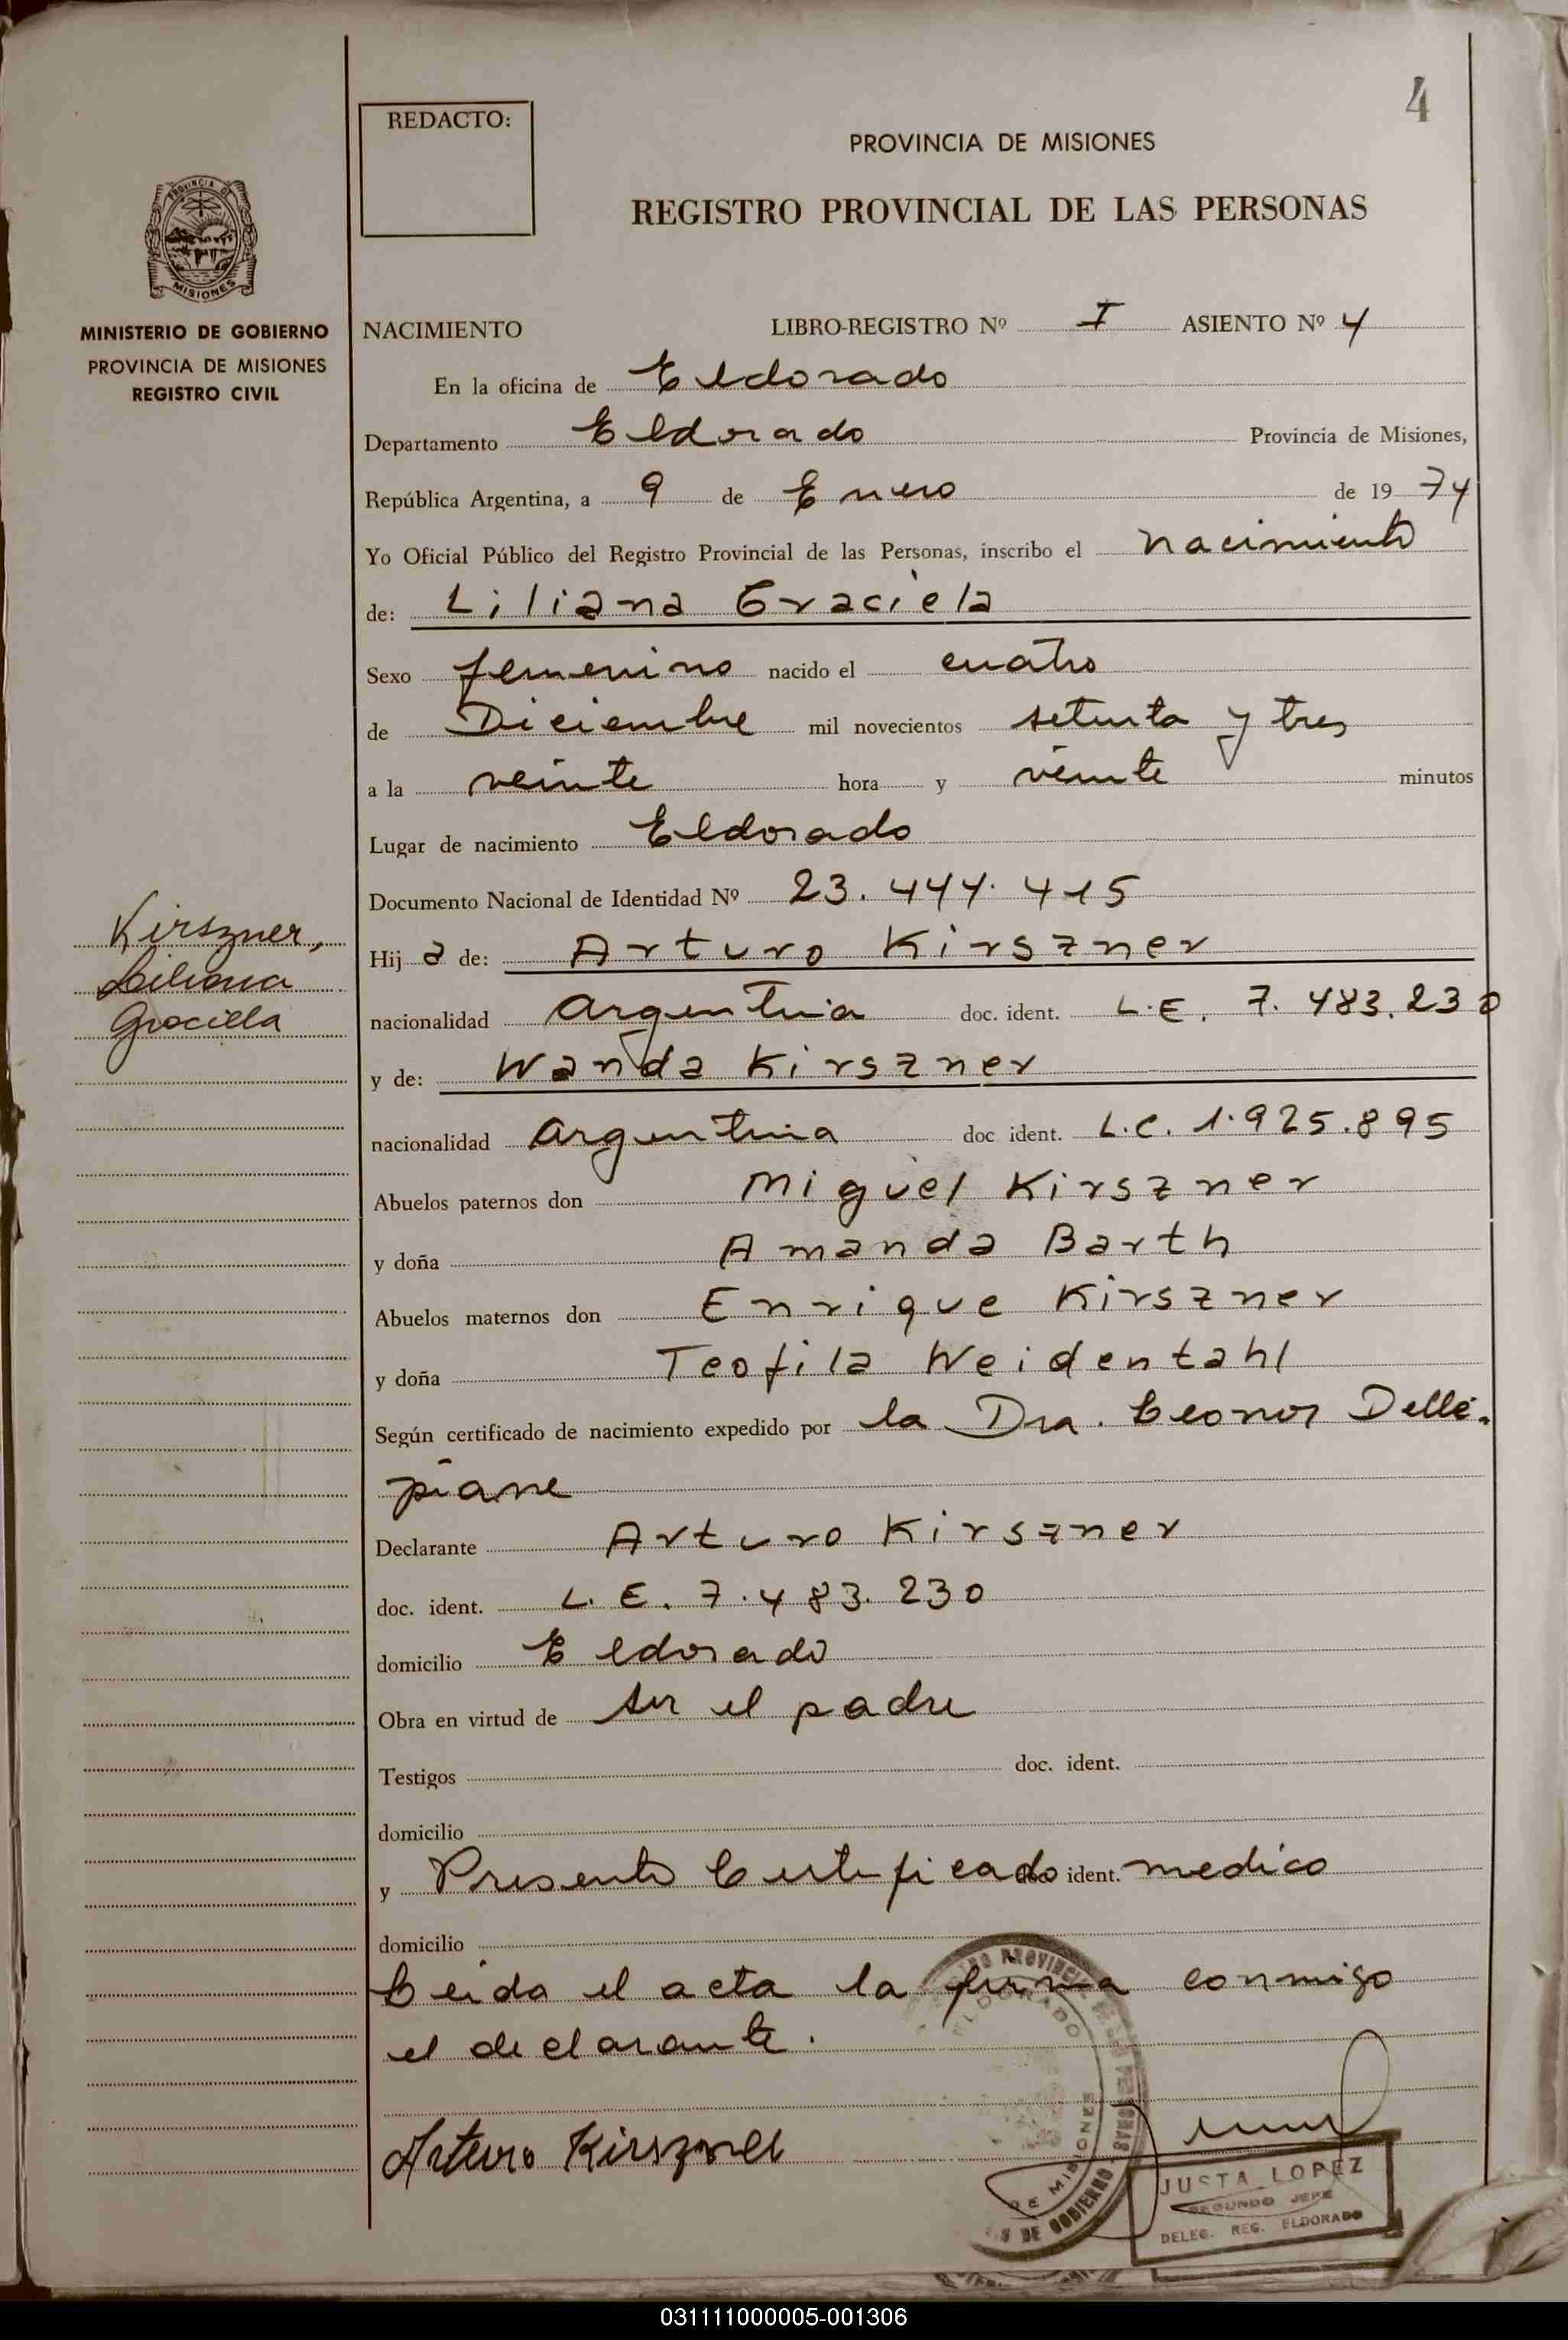 4
REDACTO:
PROVINCIA DE MISIONES
REGISTRO PROVINCIAL DE LAS PERSONAS
PROVINCIA DE
MISIONES
MINISTERIO DE GOBIERNO
PROVINCIA DE MISIONES
REGISTRO CIVIL
NACIMIENTO LIBRO-REGISTRO Nº I ASIENTO Nº 4
En la oficina de Eldorado
Departamento Eldorado Provincia de Misiones,
República Argentina, a 9 de Enero de 19 74
Yo Oficial Público del Registro Provincial de las Personas, inscribo el nacimiento
de: Liliana Graciela
Sexo femenino nacido el cuatro
de Diciembre mil novecientos setenta y tres
a la veinte hora y veinte minutos
Lugar de nacimiento Eldorado
Documento Nacional de Identidad Nº 23.444.415
Kirszner,
Liliana
Graciela
Hij a de: Arturo Kirszner
nacionalidad argentina doc. ident. L.E. 7.483.230
y de: Wanda Kirszner
nacionalidad argentina doc ident. L.C. 1.925.895
Abuelos paternos don Miguel Kirszner
y doña Amanda Barth
Abuelos maternos don Enrique Kirszner
y doña Teofila Weidentahl
Según certificado de nacimiento expedido por la Dra. Leonor Delle-
piane
Declarante Arturo Kirszner
doc. ident. L.E. 7.483.230
domicilio Eldorado
Obra en virtud de ser el padre
Testigos doc. ident.
domicilio
y Presento Certificado ident. medico
domicilio
Leida el acta la firma conmigo
el declarante.
Arturo Kirszner
ELDORADO
DE MISIONES
JUSTA LOPEZ
SEGUNDO JEFE
DELEG. REG. ELDORADO
031111000005-001306